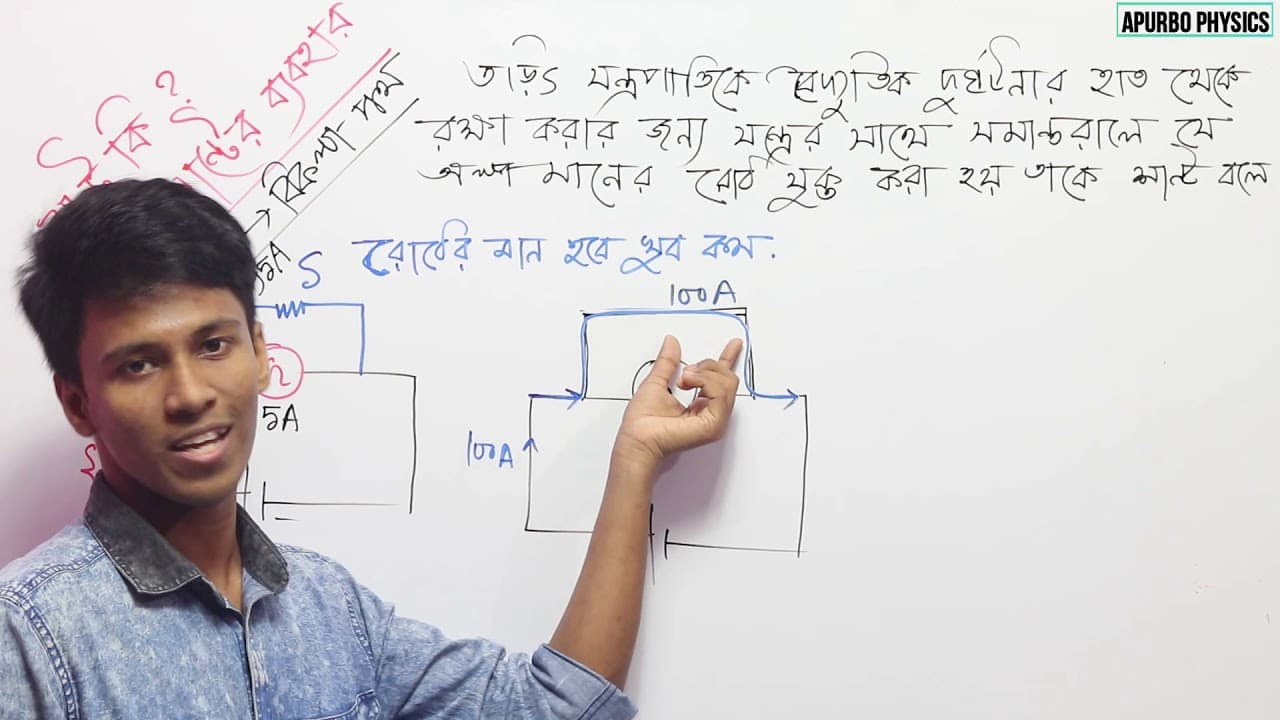 APURBO PHYSICS
কি ?
শান্টের ব্যবহার
→ বিকল্প পথ
তাড়িৎ যন্ত্রপাতিকে বৈদ্যুতিক দুর্ঘটনার হাত থেকে
রক্ষা করার জন্য যন্ত্রের সাথে সমান্তরালে যে
অল্প মানের রোধ যুক্ত করা হয় তাকে শান্ট বলে
রোধের মান হবে খুব কম.
S
5A
100A
100A